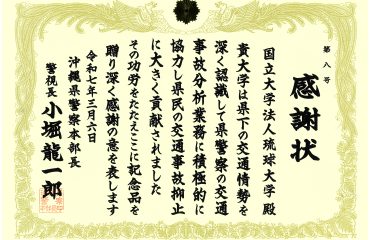 第八号
感謝状
国立大学法人琉球大学 殿
貴大学は県下の交通情勢を
深く認識して県警察の交通
事故分析業務に積極的に
協力し県民の交通事故抑止
に大きく貢献されました
その功労をたたえここに記念品を
贈り深く感謝の意を表します
令和七年三月六日
沖縄県警察本部長
警視長 小堀龍一郎